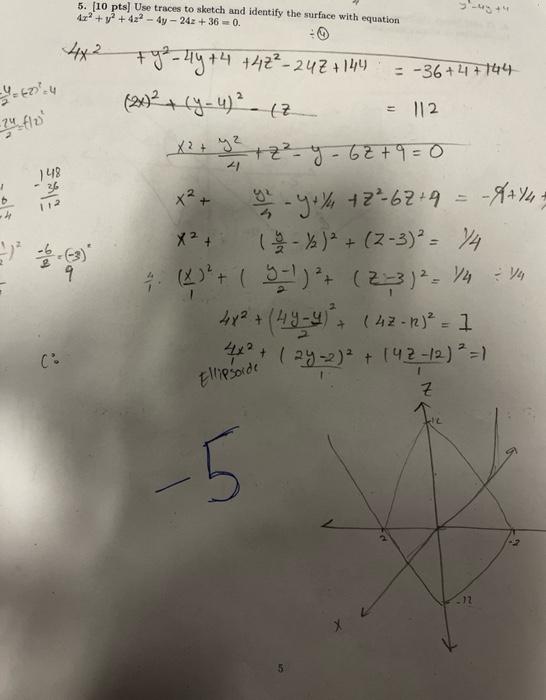 5. [10 pts] Use traces to sketch and identify the surface with equation
4x² + y² + 4z² − 4y − 24z + 36 = 0.
y²-4y+4
÷④
4x² + y²-4y+4 +4z²-24z+144 = -36+4+144
(2x)² + (y-4)² - (z = 112
x² + y²/4 + z² - y - 6z + 9 = 0
148
- 36
112
x² + y²/4 - y + 1/4 + z² - 6z + 9 = -9 + 1/4 +
x² + (y/2 - 1/2)² + (z-3)² = 1/4
-6/2 = (-3)²
9
4/1 · (x/1)² + (y-1/2)² + (z-3/1)² = 1/4 ÷ 1/4
4x² + (4y-4/2)² + (4z-12)² = 1
4x²/1 + (2y-2)²/1 + (4z-12)²/1 = 1
Ellipsoide
C:
-5
z
12
2
-2
-12
x
5